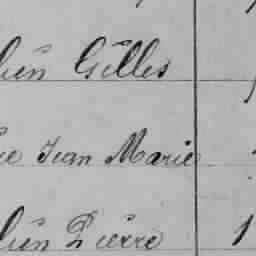 lien Gilles
ie Jean Marie
lien Pierre 1